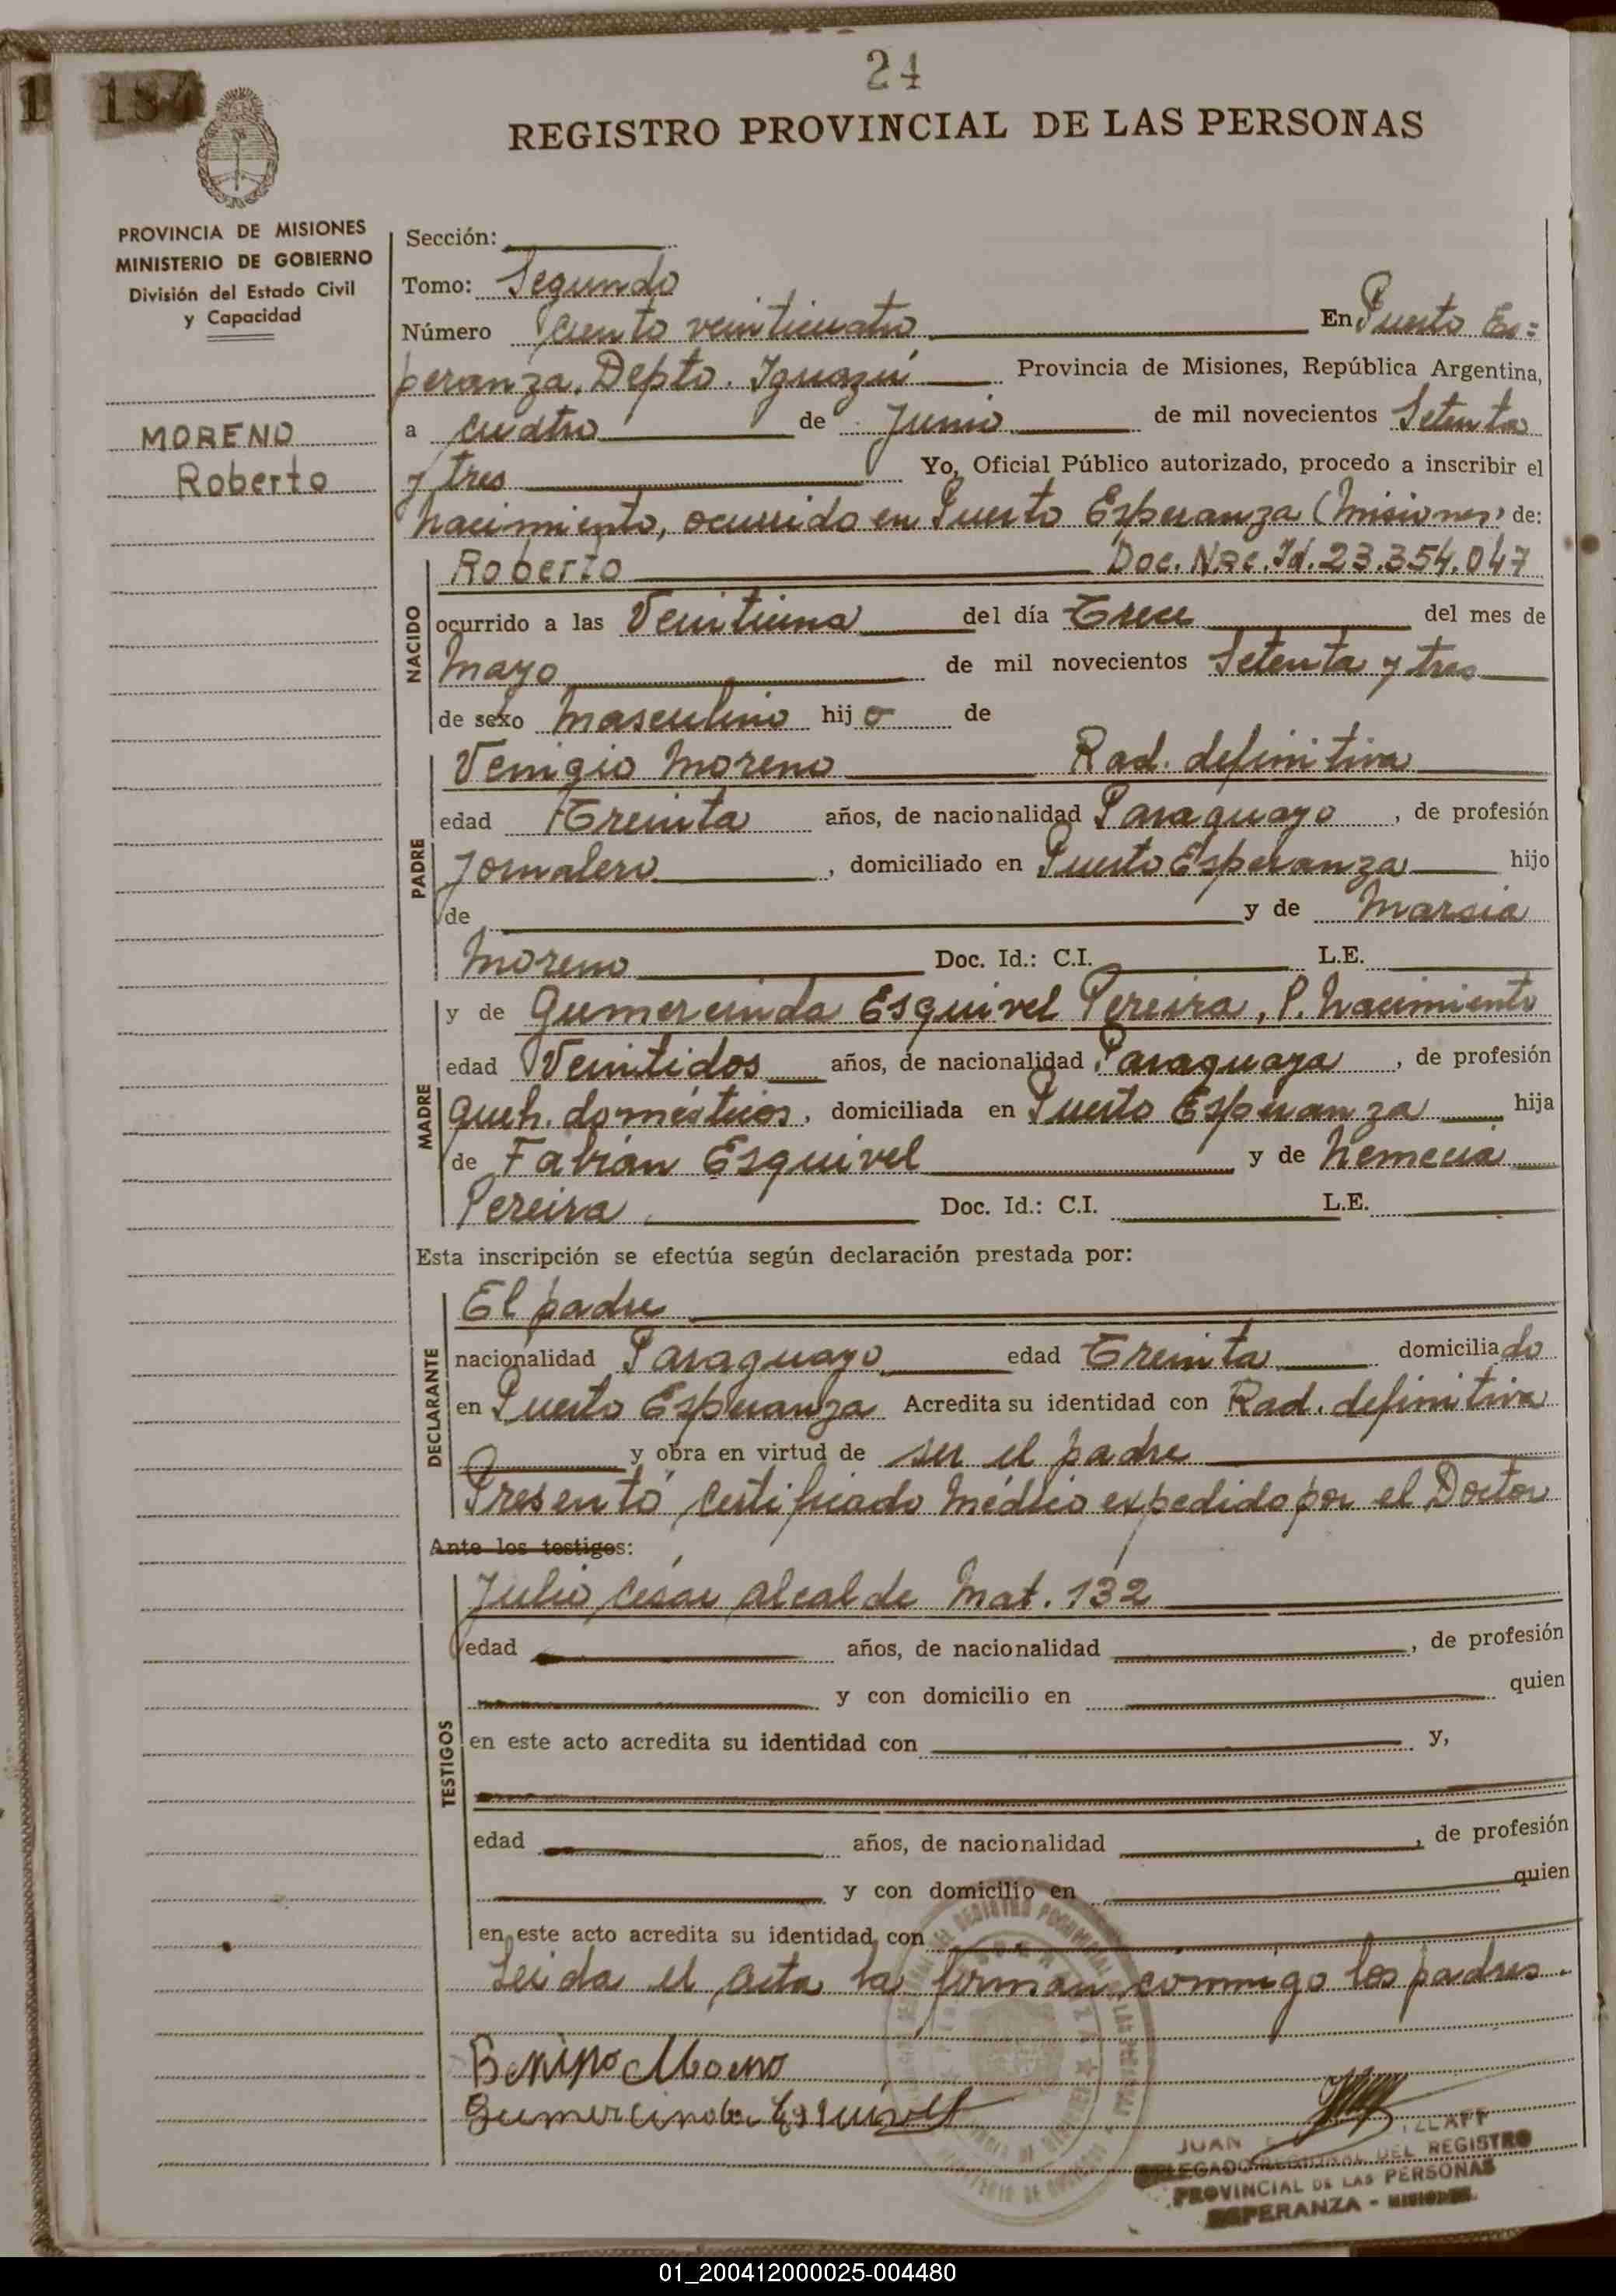 24
184
REGISTRO PROVINCIAL DE LAS PERSONAS
PROVINCIA DE MISIONES
MINISTERIO DE GOBIERNO
División del Estado Civil
y Capacidad
MORENO
Roberto
Sección:
Tomo: Segundo
Número Ciento veinticuatro En Puerto Es=
peranza. Depto. Iguazú Provincia de Misiones, República Argentina,
a cuatro de Junio de mil novecientos Setenta
y tres Yo, Oficial Público autorizado, procedo a inscribir el
Nacimiento, ocurrido en Puerto Esperanza (Misiones) de:
NACIDO
Roberto Doc. Nac. Id. 23.354.047
ocurrido a las Veintiuna del día Trece del mes de
Mayo de mil novecientos Setenta y tres
de sexo Masculino hijo de
PADRE
Venigio Moreno Rad. definitiva
edad Treinta años, de nacionalidad Paraguayo, de profesión
Jornalero, domiciliado en Puerto Esperanza hijo
de y de Marcia
Moreno Doc. Id.: C.I. L.E.
MADRE
y de Gumercinda Esquivel Pereira, P. Nacimiento
edad Veintidos años, de nacionalidad Paraguaya, de profesión
queh. domésticos, domiciliada en Puerto Esperanza hija
de Fabián Esquivel y de Nemecia
Pereira Doc. Id.: C.I. L.E.
Esta inscripción se efectúa según declaración prestada por:
DECLARANTE
El padre
nacionalidad Paraguayo edad Treinta domiciliado
en Puerto Esperanza Acredita su identidad con Rad. definitiva
y obra en virtud de ser el padre
Presentó Certificado Médico expedido por el Doctor
Ante los testigos:
TESTIGOS
Julio César Alcalde Mat. 132
edad años, de nacionalidad, de profesión
y con domicilio en quien
en este acto acredita su identidad con y,
edad años, de nacionalidad, de profesión
y con domicilio en quien
en este acto acredita su identidad con
Leida el acta la firman conmigo los padres.
Benino Moreno
Gumercinda Esquivel
JUAN
DELEGADO REGIONAL DEL REGISTRO
PROVINCIAL DE LAS PERSONAS
ESPERANZA - MISIONES
01_200412000025-004480